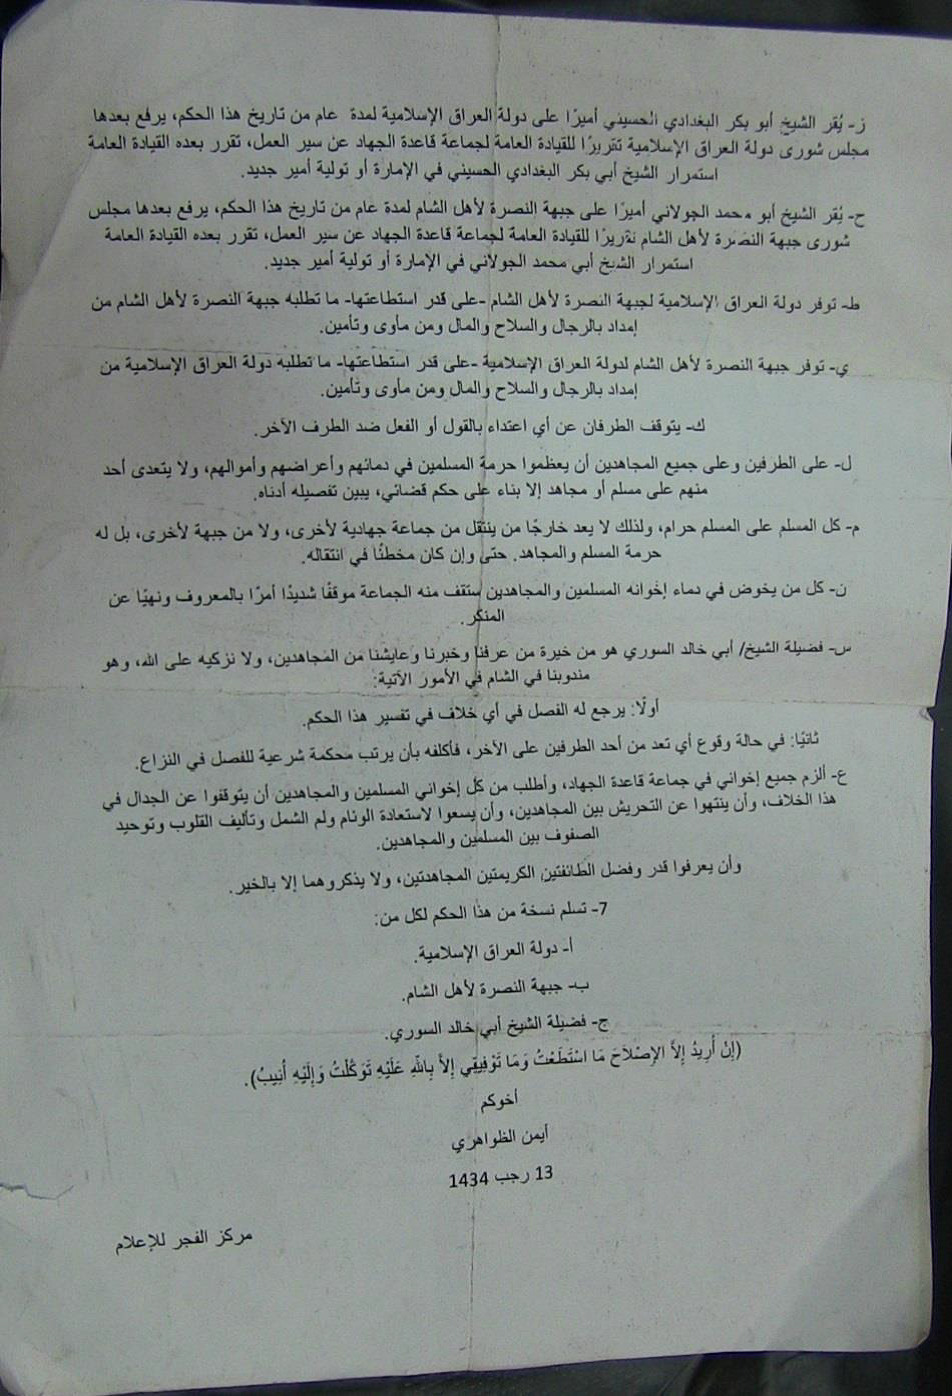 ز- يُقر الشيخ أبو بكر البغدادي الحسيني أميرًا على دولة العراق الإسلامية لمدة عام من تاريخ هذا الحكم، يرفع بعدها
مجلس شورى دولة العراق الإسلامية تقريرًا للقيادة العامة لجماعة قاعدة الجهاد عن سير العمل، تقرر بعده القيادة العامة
استمرار الشيخ أبي بكر البغدادي الحسيني في الإمارة أو تولية أمير جديد.
ح- يُقر الشيخ أبو محمد الجولاني أميرًا على جبهة النصرة لأهل الشام لمدة عام من تاريخ هذا الحكم، يرفع بعدها مجلس
شورى جبهة النصرة لأهل الشام تقريرًا للقيادة العامة لجماعة قاعدة الجهاد عن سير العمل، تقرر بعده القيادة العامة
استمرار الشيخ أبي محمد الجولاني في الإمارة أو تولية أمير جديد.
ط- توفر دولة العراق الإسلامية لجبهة النصرة لأهل الشام -على قدر استطاعتها- ما تطلبه جبهة النصرة لأهل الشام من
إمداد بالرجال والسلاح والمال ومن مأوى وتأمين.
ي- توفر جبهة النصرة لأهل الشام لدولة العراق الإسلامية -على قدر استطاعتها- ما تطلبه دولة العراق الإسلامية من
إمداد بالرجال والسلاح والمال ومن مأوى وتأمين.
ك- يتوقف الطرفان عن أي اعتداء بالقول أو الفعل ضد الطرف الآخر.
ل- على الطرفين وعلى جميع المجاهدين أن يعظموا حرمة المسلمين في دمائهم وأعراضهم وأموالهم، ولا يتعدى أحد
منهم على مسلم أو مجاهد إلا بناء على حكم قضائي، يبين تفصيله أدناه.
م- كل المسلم على المسلم حرام، ولذلك لا يعد خارجًا من ينتقل من جماعة جهادية لأخرى، ولا من جبهة لأخرى، بل له
حرمة المسلم والمجاهد. حتى وإن كان مخطئًا في انتقاله.
ن- كل من يخوض في دماء إخوانه المسلمين والمجاهدين ستقف منه الجماعة موقفًا شديدًا أمرًا بالمعروف ونهيًا عن
المنكر.
س- فضيلة الشيخ/ أبي خالد السوري هو من خيرة من عرفنا وخبرنا وعايشنا من المجاهدين، ولا نزكيه على الله، وهو
مندوبنا في الشام في الأمور الآتية:
أولًا: يرجع له الفصل في أي خلاف في تفسير هذا الحكم.
ثانيًا: في حالة وقوع أي تعد من أحد الطرفين على الآخر، فأكلفه بأن يرتب محكمة شرعية للفصل في النزاع.
ع- ألزم جميع إخواني في جماعة قاعدة الجهاد، وأطلب من كل إخواني المسلمين والمجاهدين أن يتوقفوا عن الجدال في
هذا الخلاف، وأن ينتهوا عن التحريش بين المجاهدين، وأن يسعوا لاستعادة الوئام ولم الشمل وتأليف القلوب وتوحيد
الصفوف بين المسلمين والمجاهدين.
وأن يعرفوا قدر وفضل الطائفتين الكريمتين المجاهدتين، ولا يذكروهما إلا بالخير.
7- تسلم نسخة من هذا الحكم لكل من:
أ- دولة العراق الإسلامية.
ب- جبهة النصرة لأهل الشام.
ج- فضيلة الشيخ أبي خالد السوري.
(إِنْ أُرِيدُ إِلاَّ الإِصْلاَحَ مَا اسْتَطَعْتُ وَمَا تَوْفِيقِي إِلاَّ بِاللَّهِ عَلَيْهِ تَوَكَّلْتُ وَإِلَيْهِ أُنِيبُ).
أخوكم
أيمن الظواهري
13 رجب 1434
مركز الفجر للإعلام